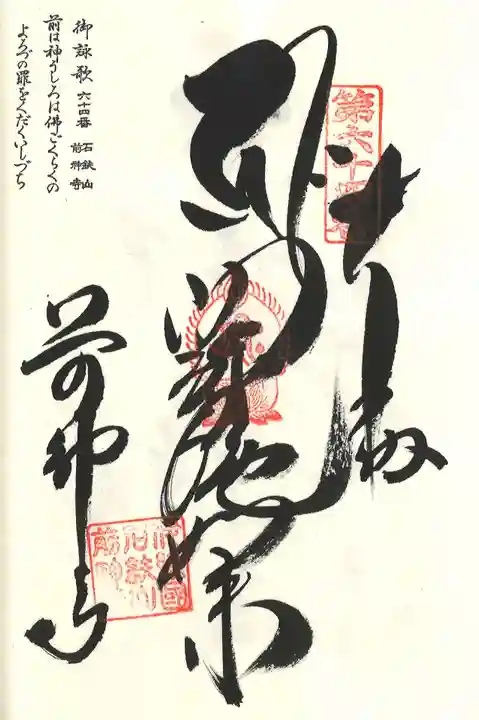 奉拝
阿弥陀如来
前神寺
第六十四番
伊予国
石鈇山
前神寺
御詠歌 六十四番 石鈇山 前神寺
前は神うしろは佛ごくらくの
よろづの罪をくだくいしづち